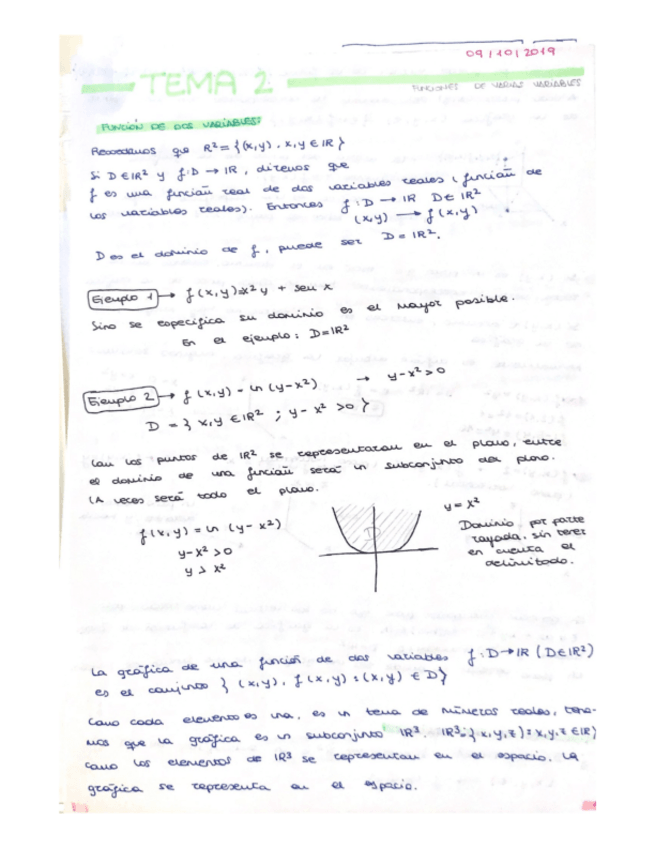 09/10/2019
TEMA 2
FUNCIONES DE VARIAS VARIABLES
FUNCIÓN DE DOS VARIABLES:
Recordemos que R² = {(x,y), x,y ∈ IR}
Si D ∈ IR² y f: D → IR, diremos que
f es una función real de dos variables reales (función de
dos variables reales). Entonces f: D → IR D ∈ IR²
(x,y) → f(x,y)
D es el dominio de f, puede ser D = IR².
Ejemplo 1 → f(x,y) = x²y + sen x
Sino se especifica su dominio es el mayor posible.
En el ejemplo: D = IR²
Ejemplo 2 → f(x,y) = ln(y-x²) → y-x²>0
D = { x,y ∈ IR² ; y - x² > 0 }
Con los puntos de IR² se representaran en el plano, entre
el dominio de una función será un subconjunto del plano.
(A veces será todo el plano.
f(x,y) = ln (y-x²)
y-x² > 0
y > x²
D
y = x²
Dominio, por parte
rayada, sin tener
en cuenta el
delimitado.
La gráfica de una función de dos variables f: D → IR (D ∈ IR²)
es el conjunto } (x,y), f(x,y) : (x,y) ∈ D}
Como cada elemento es una, es un terna de números reales, tene-
mos que la gráfica es un subconjunto IR³ IR³: } x,y,z) : x,y,z ∈ IR}
como los elementos de IR³ se representan en el espacio. La
gráfica se representa en el espacio.